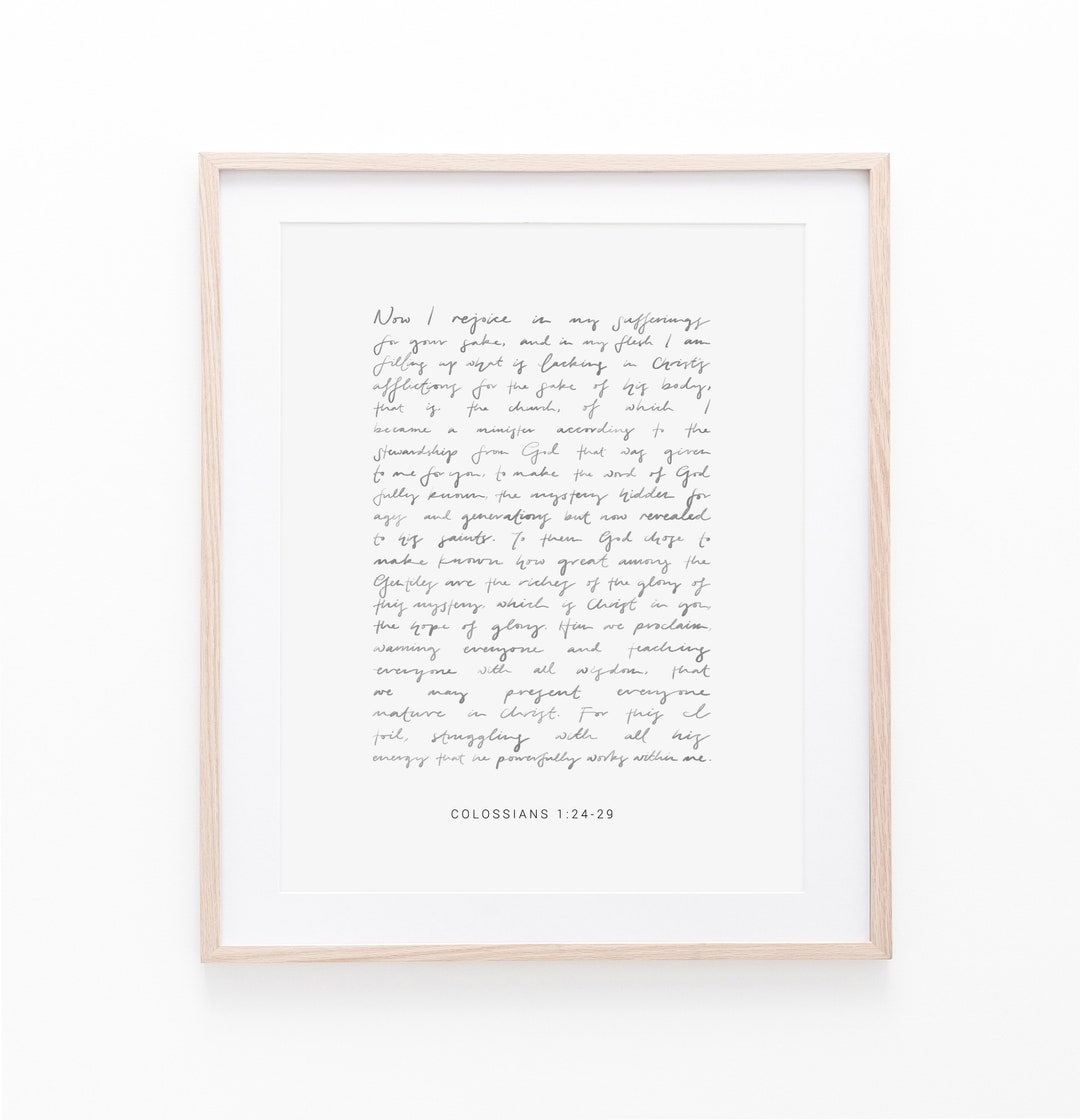 Now I rejoice in my sufferings
for your sake, and in my flesh I am
filling up what is lacking in Christ's
afflictions for the sake of his body,
that is, the church, of which I
became a minister according to the
stewardship from God that was given
to me for you, to make the word of God
fully known, the mystery hidden for
ages and generations but now revealed
to his saints. To them God chose to
make known how great among the
Gentiles are the riches of the glory of
this mystery, which is Christ in you,
the hope of glory. Him we proclaim,
warning everyone and teaching
everyone with all wisdom, that
we may present everyone
mature in Christ. For this I
toil, struggling with all his
energy that he powerfully works within me.
COLOSSIANS 1:24-29